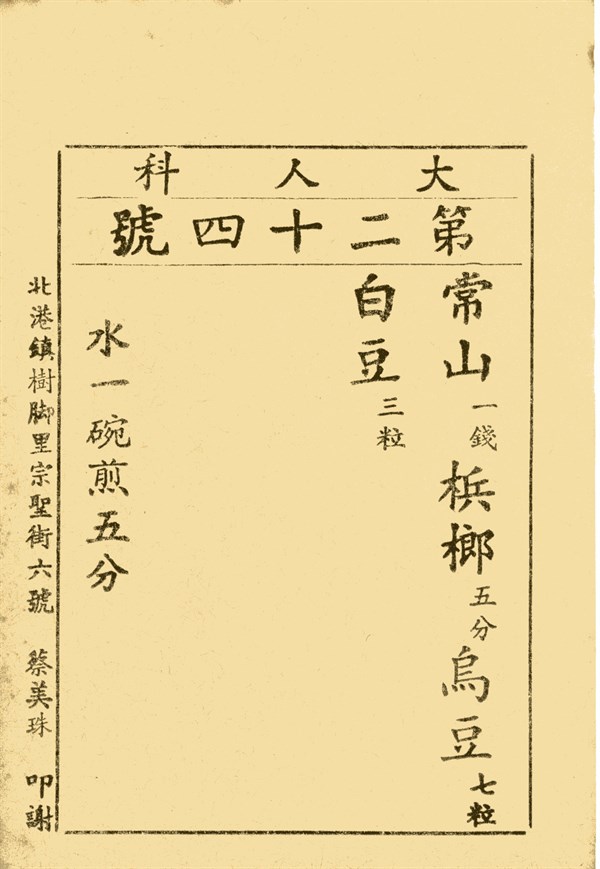 大人科
第二十四號
常山一錢梹榔五分烏豆七粒
白豆三粒
水一碗煎五分
北港鎮樹脚里宗聖街六號 蔡美珠 叩謝